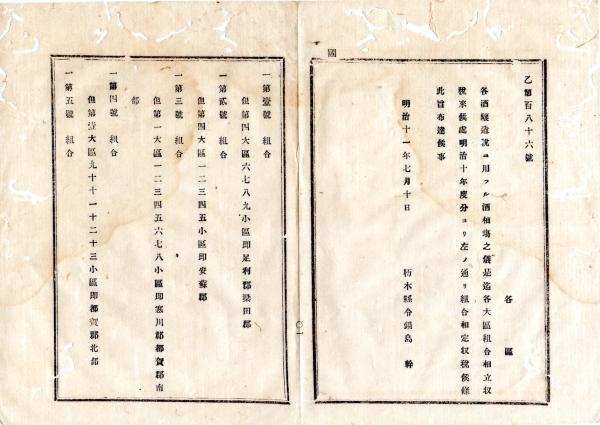 乙第百八十六號
各區
各酒類造稅ニ用フル酒相塲之儀是迄各大區組合相立収
稅來候處明治十年度分ヨリ左ノ通リ組合相定収稅候條
此旨布達候事
明治十一年七月十日
栃木縣令鍋島 幹
國
〇一
一第壹號 組合
但第四大區六七八九小區即足利郡梁田郡
一第貳號 組合
但第四大區一二三四五小區即安蘇郡
一第三號 組合
但第一大區一二三四五六七八小區即寒川郡都賀郡南
部
一第四號 組合
但第壹大區九十十一十二十三小區即都賀郡北部
一第五號 組合